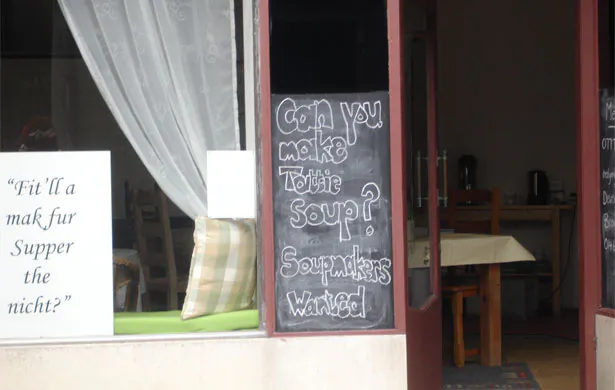 "Fit'll a
mak fur
Supper
the
nicht?"
Can you
make
Tottie
Soup?
Soupmakers
Wanted